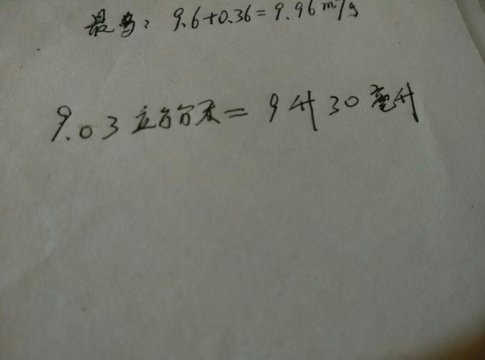 最多: 9.6+0.36=9.96 m/s
9.03立方分米=9升30毫升